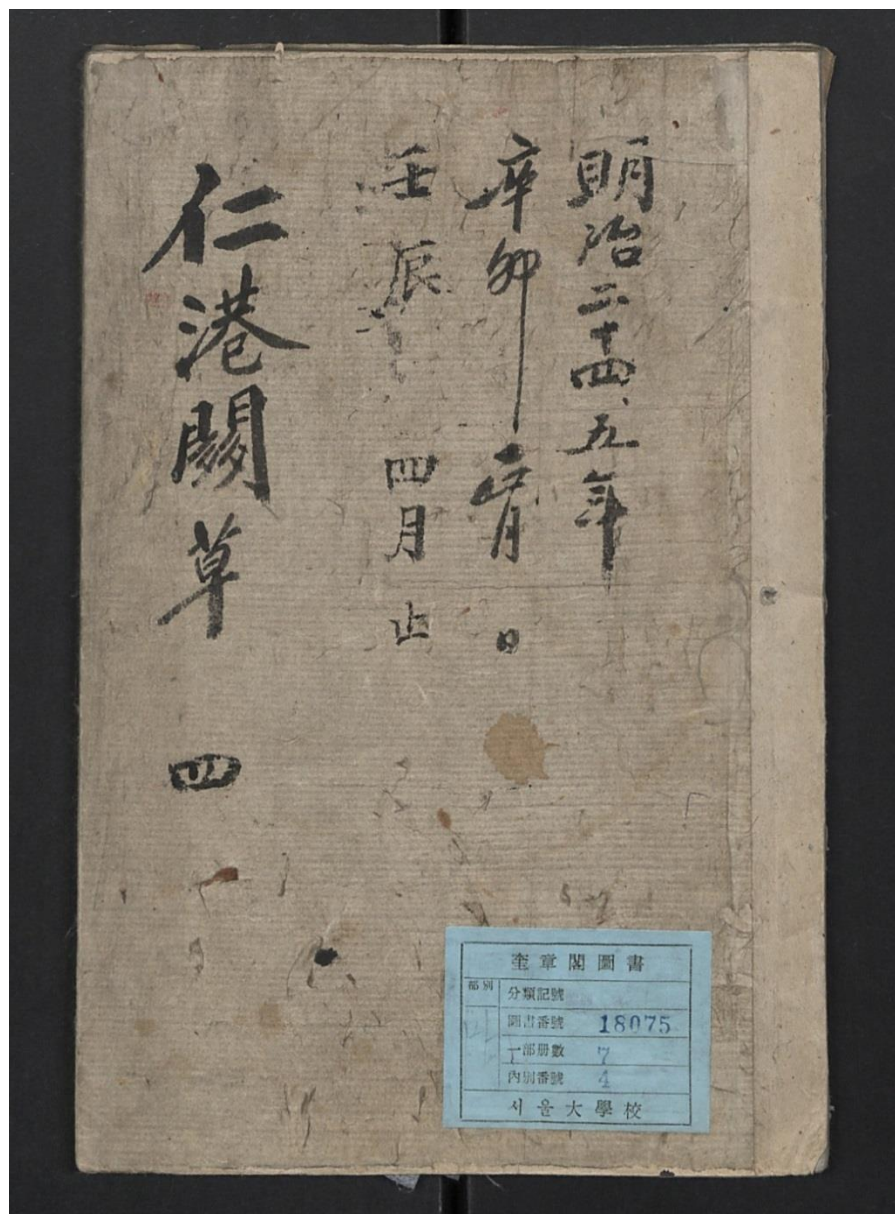 明治二十四、五年
辛卯正月 日
壬辰 四月止
仁港關草 四
奎章閣圖書
部別
分類記號
圖書番號 18075
一部册數 7
內別番號 4
서울大學校